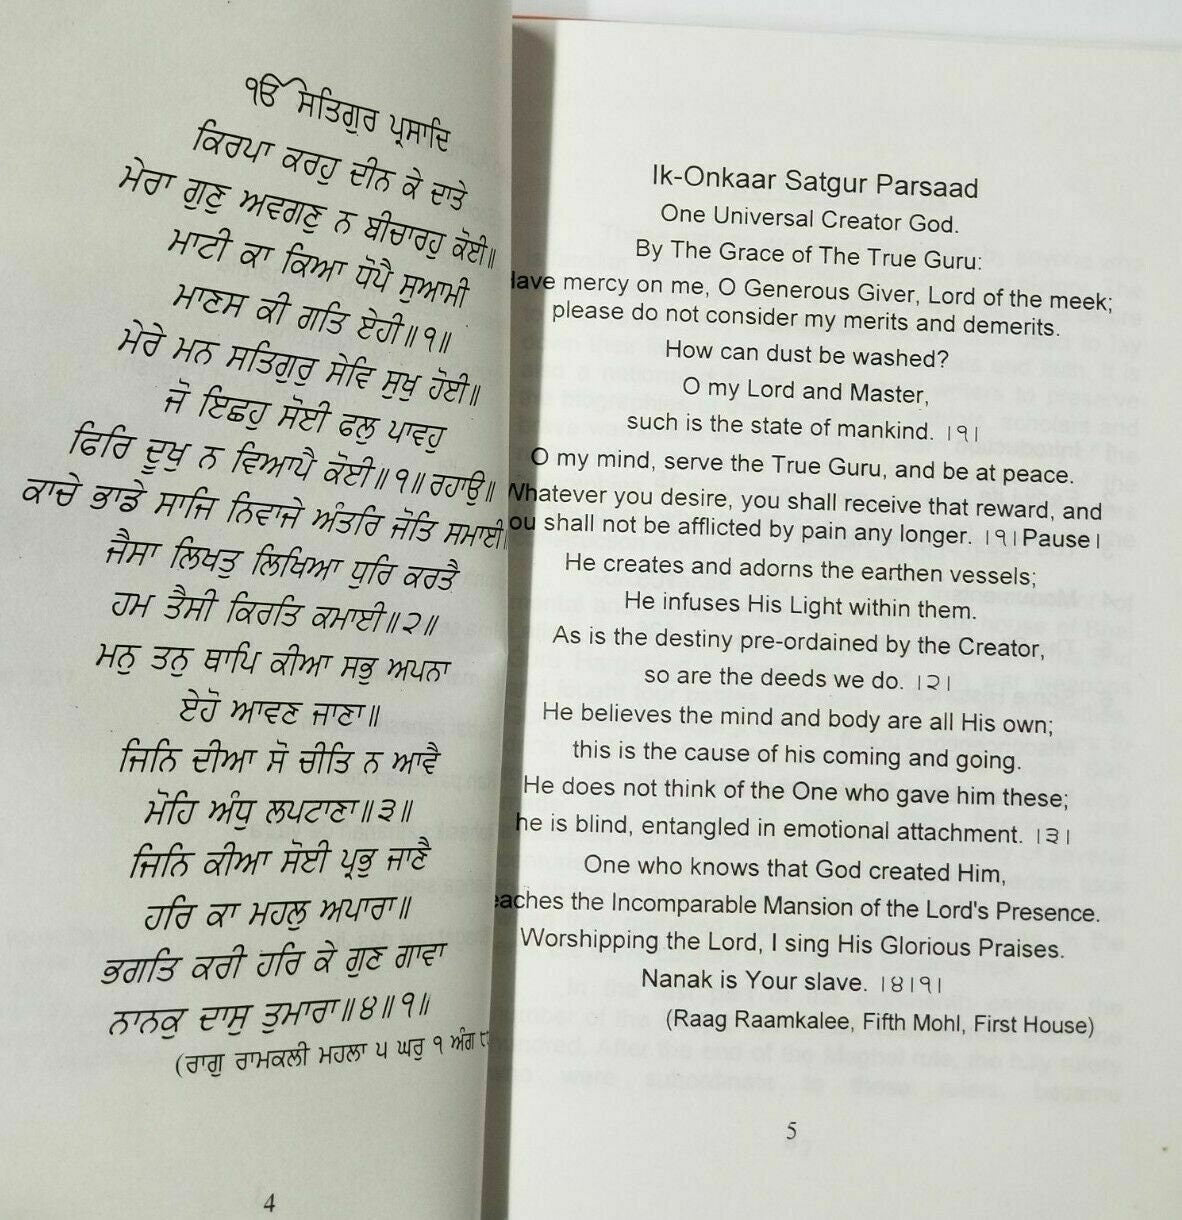 ੴ ਸਤਿਗੁਰ ਪ੍ਰਸਾਦਿ
ਕਿਰਪਾ ਕਰਹੁ ਦੀਨ ਕੇ ਦਾਤੇ
ਮੇਰਾ ਗੁਣੁ ਅਵਗਣੁ ਨ ਬੀਚਾਰਹੁ ਕੋਈ॥
ਮਾਟੀ ਕਾ ਕਿਆ ਧੋਪੈ ਸੁਆਮੀ
ਮਾਣਸ ਕੀ ਗਤਿ ਏਹੀ॥੧॥
ਮੇਰੇ ਮਨ ਸਤਿਗੁਰੁ ਸੇਵਿ ਸੁਖੁ ਹੋਈ॥
ਜੋ ਇਛਹੁ ਸੋਈ ਫਲੁ ਪਾਵਹੁ
ਫਿਰਿ ਦੂਖੁ ਨ ਵਿਆਪੈ ਕੋਈ॥੧॥ਰਹਾਉ॥
ਕਾਚੇ ਭਾਡੇ ਸਾਜਿ ਨਿਵਾਜੇ ਅੰਤਰਿ ਜੋਤਿ ਸਮਾਈ॥
ਜੈਸਾ ਲਿਖਤੁ ਲਿਖਿਆ ਧੁਰਿ ਕਰਤੈ
ਹਮ ਤੈਸੀ ਕਿਰਤਿ ਕਮਾਈ॥੨॥
ਮਨੁ ਤਨੁ ਥਾਪਿ ਕੀਆ ਸਭੁ ਅਪਨਾ
ਏਹੋ ਆਵਣ ਜਾਣਾ॥
ਜਿਨਿ ਦੀਆ ਸੋ ਚੀਤਿ ਨ ਆਵੈ
ਮੋਹਿ ਅੰਧੁ ਲਪਟਾਣਾ॥੩॥
ਜਿਨਿ ਕੀਆ ਸੋਈ ਪ੍ਰਭੁ ਜਾਣੈ
ਹਰਿ ਕਾ ਮਹਲੁ ਅਪਾਰਾ॥
ਭਗਤਿ ਕਰੀ ਹਰਿ ਕੇ ਗੁਣ ਗਾਵਾ
ਨਾਨਕੁ ਦਾਸੁ ਤੁਮਾਰਾ॥੪॥੧॥
(ਰਾਗੁ ਰਾਮਕਲੀ ਮਹਲਾ ੫ ਘਰੁ ੧ ਅੰਗ
4
Ik-Onkaar Satgur Parsaad
One Universal Creator God.
By The Grace of The True Guru:
mercy on me, O Generous Giver, Lord of the meek;
please do not consider my merits and demerits.
How can dust be washed?
O my Lord and Master,
such is the state of mankind. ।੧।
O my mind, serve the True Guru, and be at peace.
Whatever you desire, you shall receive that reward, and
shall not be afflicted by pain any longer. ।੧।Pause।
He creates and adorns the earthen vessels;
He infuses His Light within them.
As is the destiny pre-ordained by the Creator,
so are the deeds we do. ।੨।
He believes the mind and body are all His own;
this is the cause of his coming and going.
He does not think of the One who gave him these;
he is blind, entangled in emotional attachment. ।੩।
One who knows that God created Him,
the Incomparable Mansion of the Lord's Presence.
Worshipping the Lord, I sing His Glorious Praises.
Nanak is Your slave. ।੪।੧।
(Raag Raamkalee, Fifth Mohl, First House)
5